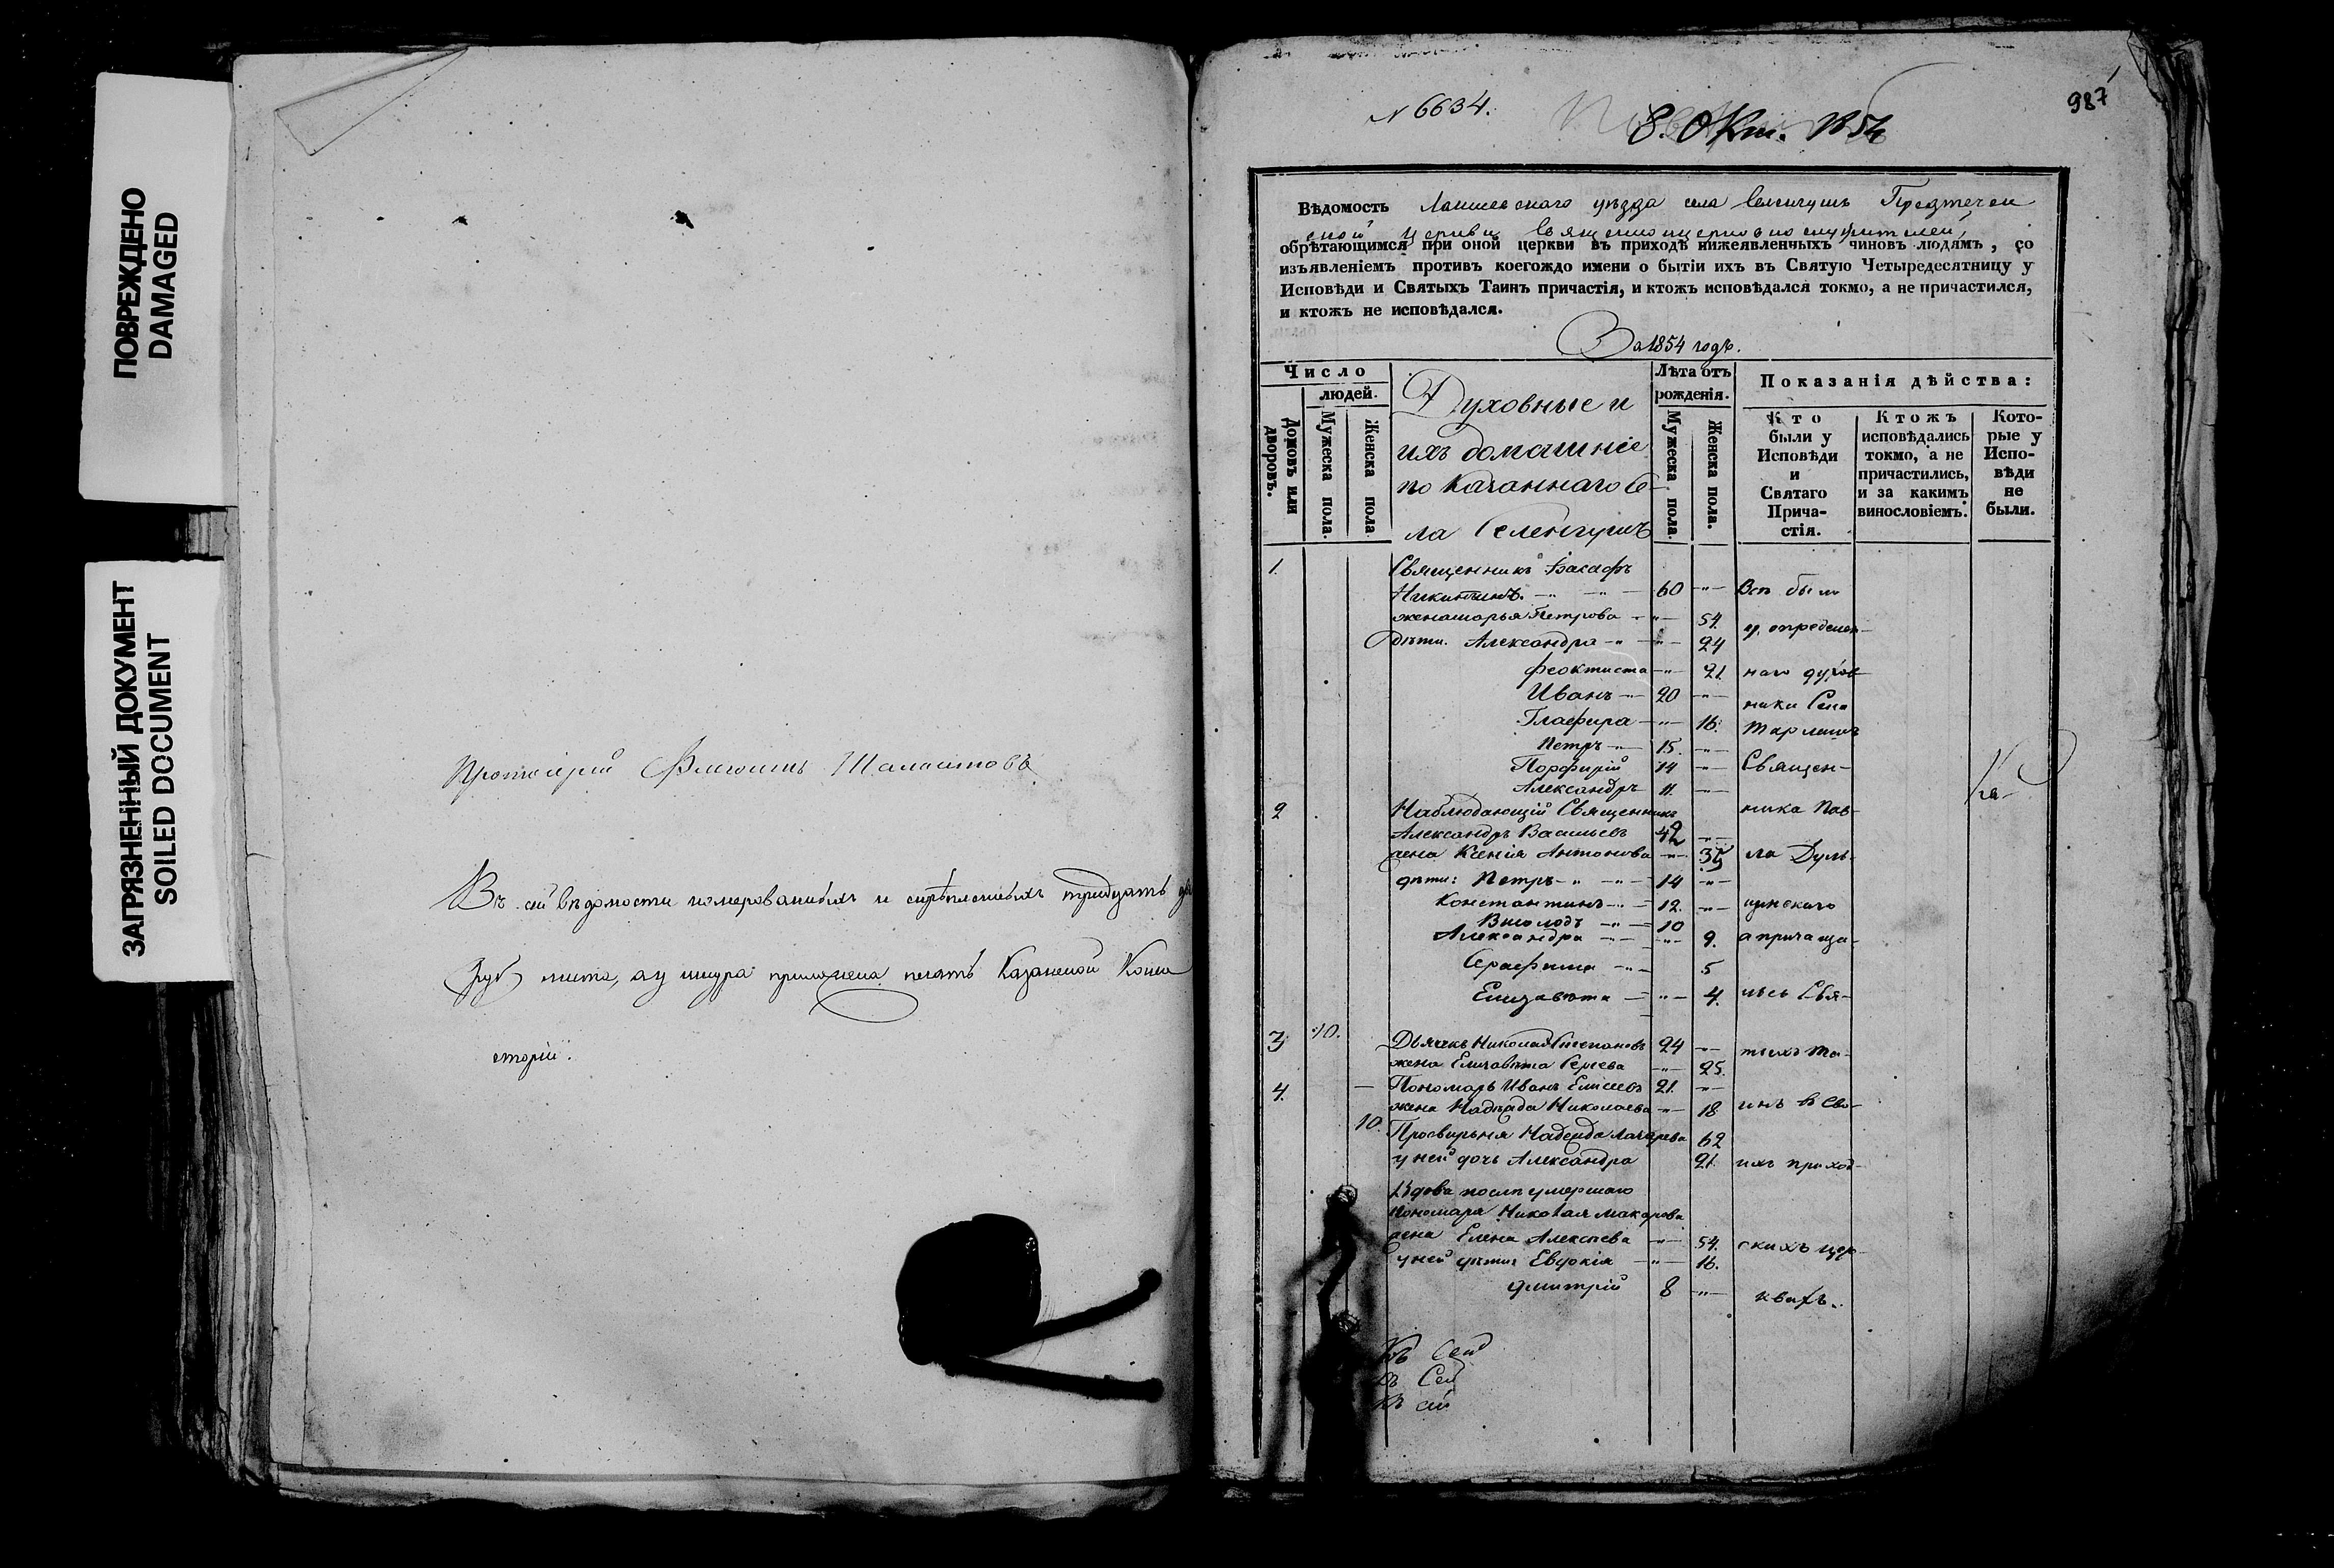 ПОВРЕЖДЕНО
DAMAGED
ЗАГРЯЗНЕННЫЙ ДОКУМЕНТ
SOILED DOCUMENT
Протоіерей
Въ сей вѣдомости номерованныхъ и скрѣпленныхъ тридцать
листа, а у шнура приложена печать Казанской Конси
сторіи.
N 6634.
8. Окт. 1854
987
Вѣдомость Лаишевскаго уѣзда села Предтечен
ской церкви священноцерковнослужителей,
обрѣтающимся при оной церкви въ приходѣ нижеявленныхъ чиновъ людямъ, со
изъявленіемъ противъ коегождо имени о бытіи ихъ въ Святую Четыредесятницу у
Исповѣди и Святыхъ Таинъ причастія, и ктожъ исповѣдался токмо, а не причастился,
и ктожъ не исповѣдался.
За 1854 годъ.
Число
людей.
Домовъ или дворовъ.
Мужеска пола.
Женска пола.
Духовные и
ихъ домашніе
показаннаго Се-
ла
Лѣта отъ
рожденія.
Мужеска пола.
Женска пола.
Показанія дѣйства:
Кто
были у
Исповѣди
и
Святаго
Прича-
стія.
Ктожъ
исповѣдались
токмо, а не
причастились,
и за какимъ
винословіемъ.
Кото-
рые у
Испо-
вѣди
не
были.
1. Священникъ
Никитинъ. 60 Всѣ были
жена Марья Петрова 54.
дѣти. Александра 24 у определен-
Феоктиста 21 наго духов-
Иванъ 20 ника Села
Глафира 16.
Петръ 15.
Порфирій 14 Священ-
Александръ 11.
2 Наблюдающій Священникъ ника Пав-
Александръ Васильевъ 42
жена Ксенія Антонова 35 ла Дуль-
дѣти: Петръ 14
Константинъ 12. цинскаго
10
Александра 9. а причаща-
Серафима 5
Елизавета 4. лись Свя-
3 10. Дьячекъ Николай Степановъ 24 тыхъ та-
жена Елизавета Сергева 25.
4. Пономарь Иванъ Елисеевъ 21.
жена Надежда Николаева 18 инъ въ сво-
10. Просвирьня Надежда Лазарева 62
у ней дочь Александра 21 ихъ приход-
Вдова послѣ умершаго
пономаря Николая Макарова
жена Елена Алексѣева 54. скихъ цер-
у ней дѣти Евдокія 16.
Дмитрій 8 квахъ.
Къ Сей
Къ Сей
Къ сей